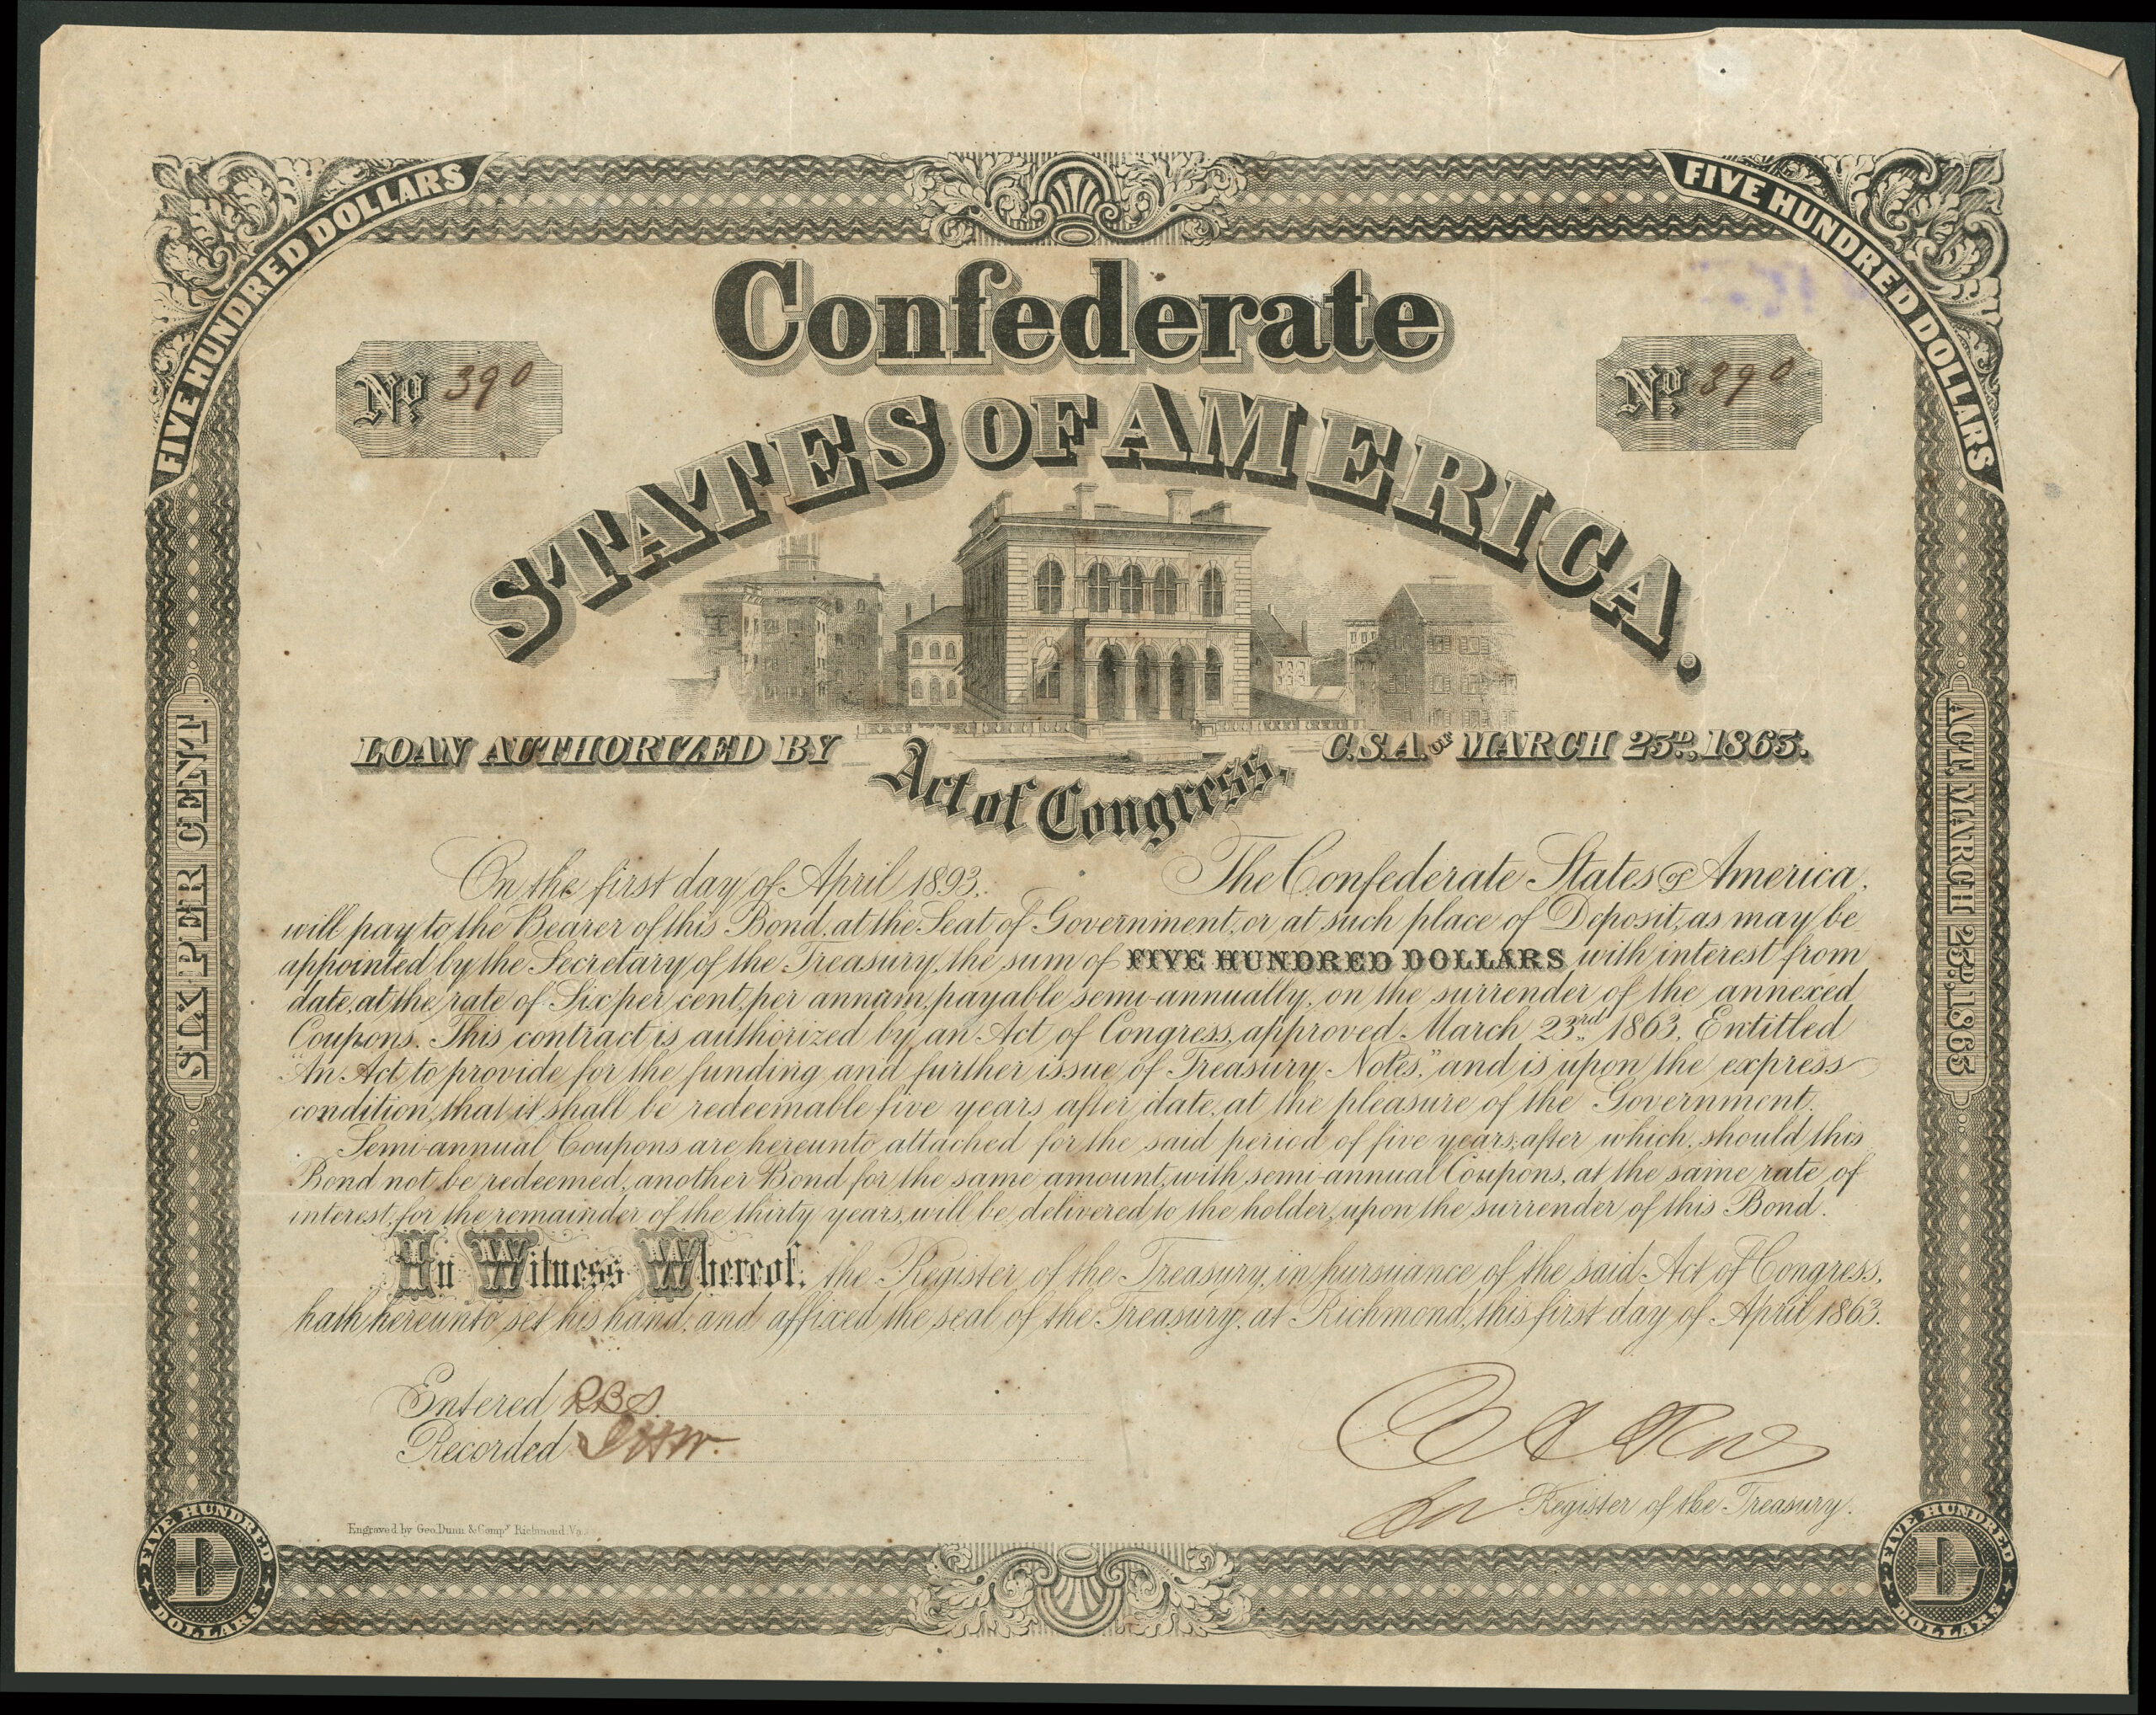 FIVE HUNDRED DOLLARS
FIVE HUNDRED DOLLARS
Confederate
No 390
No 390
STATES OF AMERICA.
LOAN AUTHORIZED BY
Act of Congress,
C.S.A. OF MARCH 23D, 1863.
SIX PER CENT
ACT, MARCH 23D, 1863
On the first day of April 1893. The Confederate States of America,
will pay to the Bearer of this Bond, at the Seat of Government, or at such place of Deposit, as may be
appointed by the Secretary of the Treasury, the sum of FIVE HUNDRED DOLLARS with interest from
date, at the rate of Six per cent, per annum, payable semi-annually, on the surrender of the annexed
Coupons. This contract is authorized by an Act of Congress, approved March 23rd 1863, Entitled
"An Act to provide for the funding and further issue of Treasury Notes," and is upon the express
condition, that it shall be redeemable five years after date, at the pleasure of the Government.
Semi-annual Coupons are hereunto attached for the said period of five years; after which, should this
Bond not be redeemed, another Bond for the same amount, with semi-annual Coupons, at the same rate of
interest, for the remainder of the thirty years, will be delivered to the holder, upon the surrender of this Bond.
In Witness Whereof, the Register of the Treasury, in pursuance of the said Act of Congress,
hath hereunto set his hand, and affixed the seal of the Treasury, at Richmond, this first day of April 1863.
Entered RBS
Recorded
for Register of the Treasury.
Engraved by Geo. Dunn & Compy Richmond. Va.
FIVE HUNDRED
D
DOLLARS
FIVE HUNDRED
D
DOLLARS